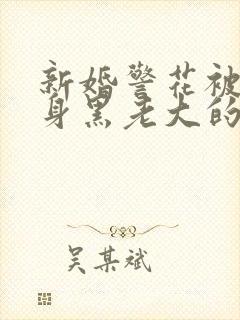 新婚警花被
身黑老大的
吴某斌